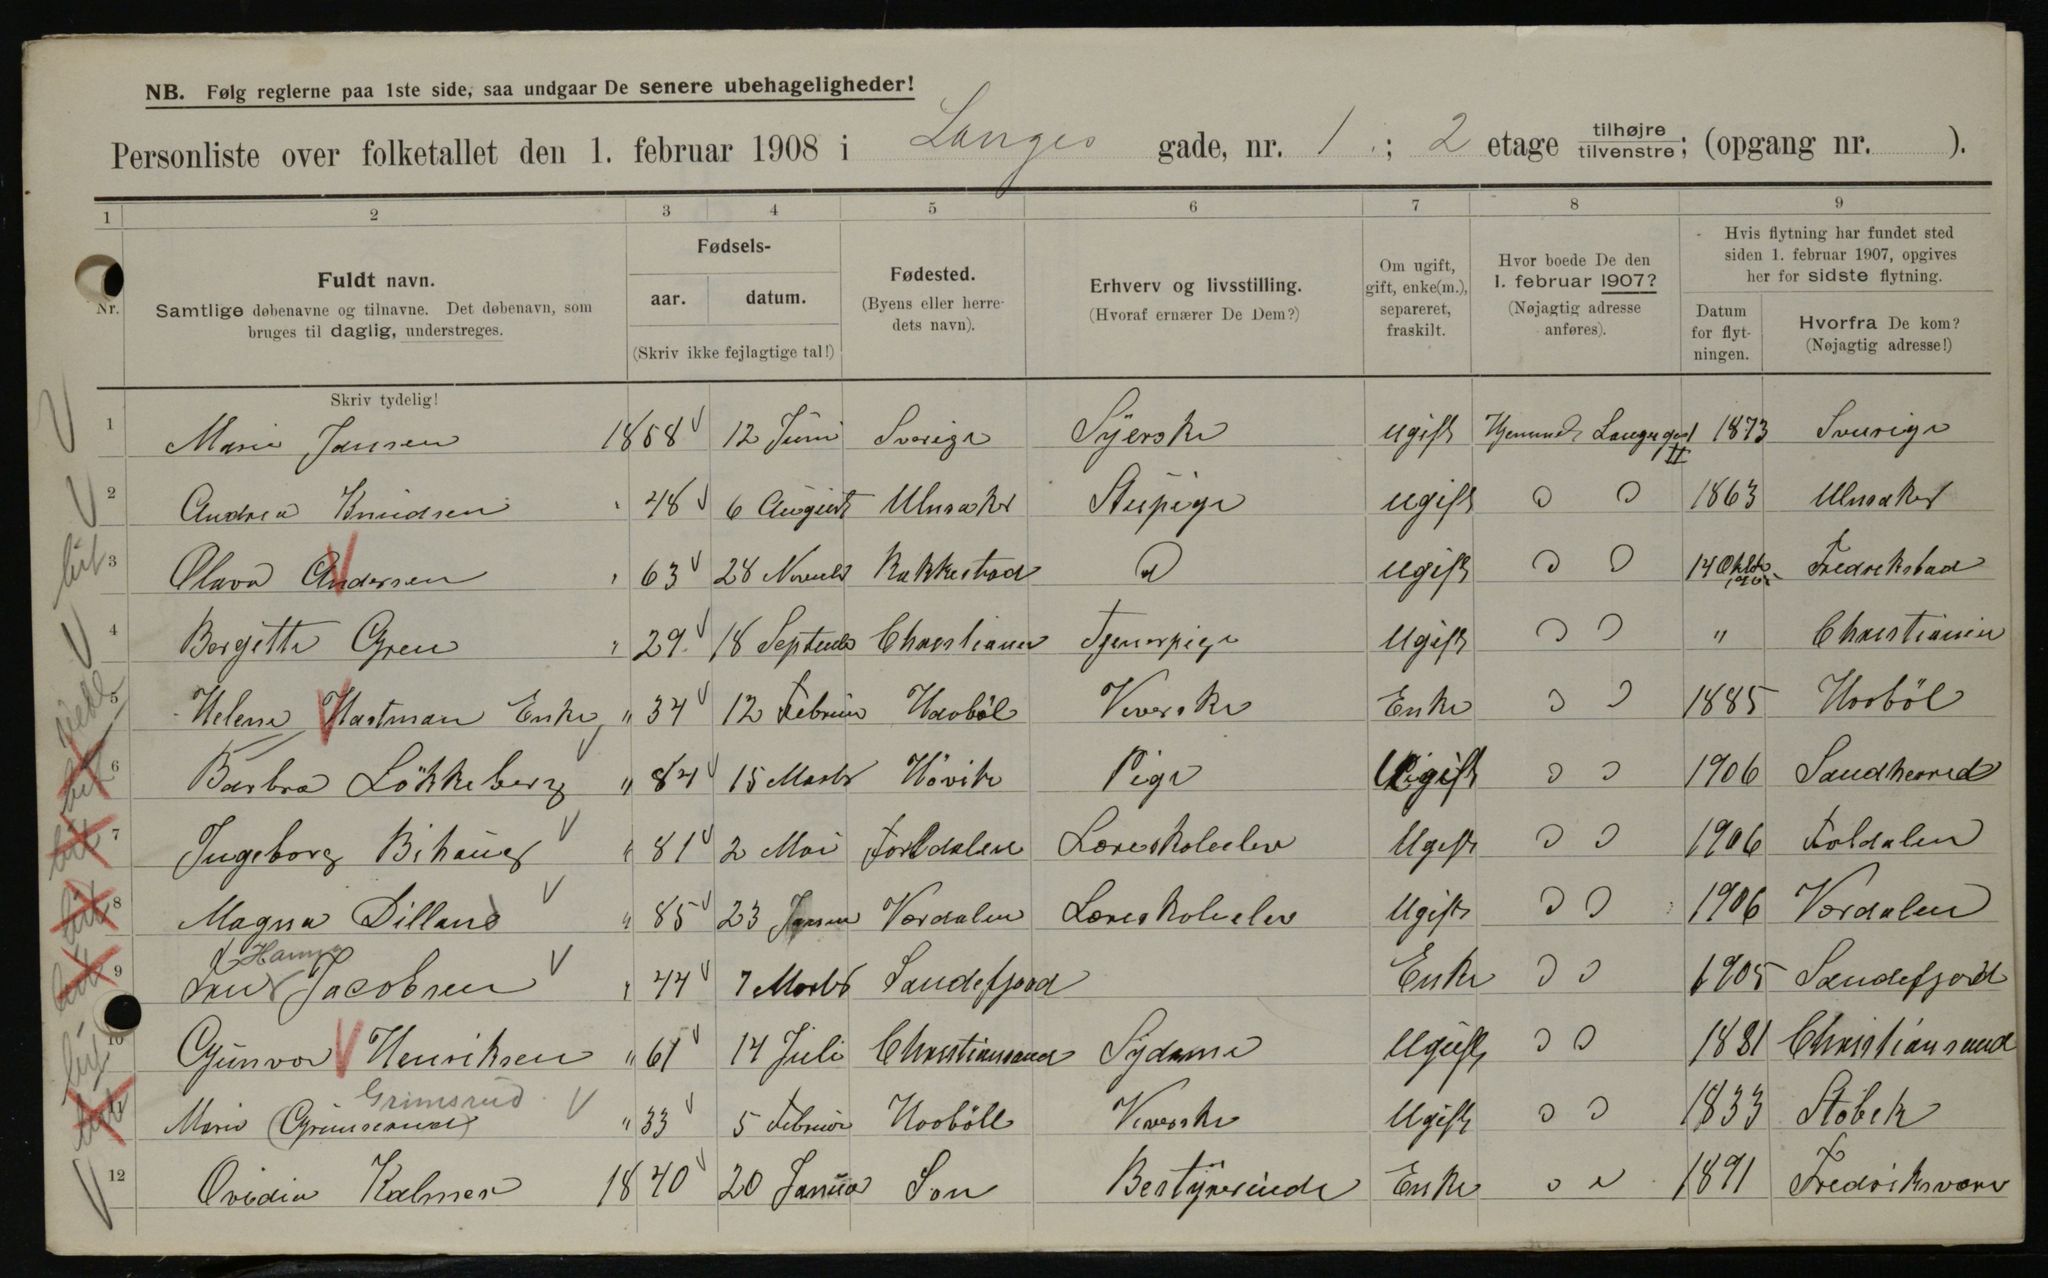 NB. Følg reglerne paa 1ste side, saa undgaar De senere ubehageligheder!
Personliste over folketallet den 1. februar 1908 i Langes gade, nr. 1 ; 2 etage tilhøjre tilvenstre ; (opgang nr. ).
1 2 3 4 5 6 7 8 9
Nr. Fuldt navn. Samtlige døbenavne og tilnavne. Det døbenavn, som bruges til daglig, understreges.
Fødsels-
aar. datum.
(Skriv ikke fejlagtige tal!)
Fødested. (Byens eller herredets navn).
Erhverv og livsstilling. (Hvoraf ernærer De Dem?)
Om ugift, gift, enke(m.), separeret, fraskilt.
Hvor boede De den 1. februar 1907? (Nøjagtig adresse anføres).
Hvis flytning har fundet sted siden 1. februar 1907, opgives her for sidste flytning.
Datum for flytningen.
Hvorfra De kom? (Nøjagtig adresse!)
Skriv tydelig!
1 Marie Jansen 1858 12 Juni Sverige Syerske ugift 1873 Sverige
2 Andrea Knudsen " 48 6 August Ulnsaker Stupige ugift " " 1863 Ulnsaker
3 Olava Andersen " 63 28 Novmb Rakkestad " ugift " " 14 Oktb Fredrikstad
4 Bergitte Gren " 29 18 Septmb Christiania Tjenerpige Ugift " " " Christiania
5 Helene Hartman Enke " 34 12 Februar Haabøl Veverske Enke " " 1885 Hobøl
6 Barbra Løkkeberg " 84 15 Marts Høvik Pige Ugift " " 1906 Sandherred
7 Ingeborg Bihaug " 81 2 Mai Foldalen Læreskoleelev Ugift " " 1906 Foldalen
8 Magna Dilland " 85 23 Januar Værdalen Læreskoleelev Ugift " " 1906 Værdalen
Hanna
9 Fru Jacobsen " 44 7 Marts Sandefjord Enke " " 1905 Sandefjord
10 Gunvor Henriksen " 61 14 Juli Christiansand Sydame Ugift " " 1881 Christiansand
Grimsrud
11 Marie " 33 5 Februar Hobøll Veverske Ugift " " 1833 Støbek
12 Ovidia Kalmer 1840 20 Januar Son Bestyrerinde Enke " " 1891 Fredriksværn